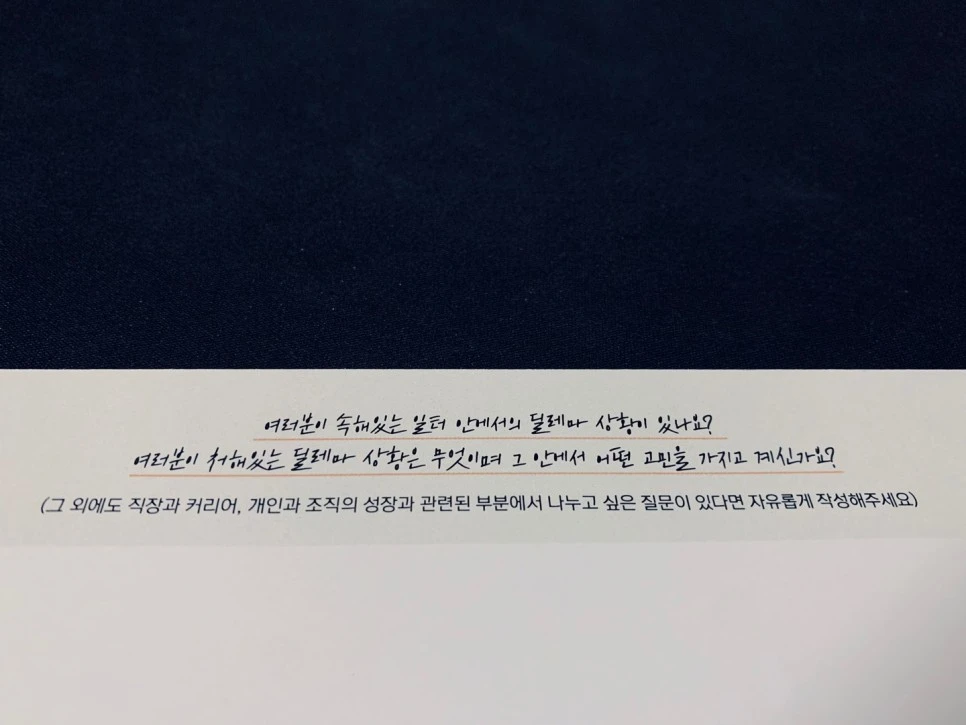 여러분이 속해있는 일터 안에서의 딜레마 상황이 있나요?
여러분이 처해있는 딜레마 상황은 무엇이며 그 안에서 어떤 고민을 가지고 계신가요?
(그 외에도 직장과 커리어, 개인과 조직의 성장과 관련된 부분에서 나누고 싶은 질문이 있다면 자유롭게 작성해주세요)